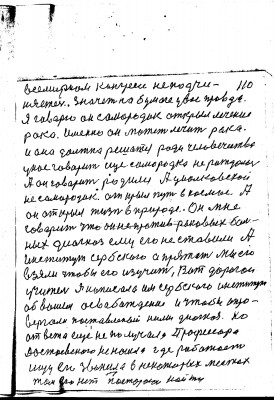 всемирном конгрессе не подчи- 110
няется. Значит на бумаге у вас правда.
Я говорю он самородок открыл лечение
рака. Именно он может лечит рака.
и она должна решать ради человечества
у нас говорит еще самородка не
А он говорит родился А циолковский
не самородок. открыл путь в космос. А
он открыл в природе. Он мне
говорит что он не против раковых боль-
ных диагноз ему его не ставили А
институт сербского а против мы его
взяли чтобы его изучить, Вот дорогой
учителя Я написала им сербского институт
об вашем освобождение и чтобы опро-
вергали поставленый ними диагноз. Но
ответа еще не получала Профессора
Достовалского не нашла где работает
ищу его звонила в некоторых местах
там его нет постораюсь найти